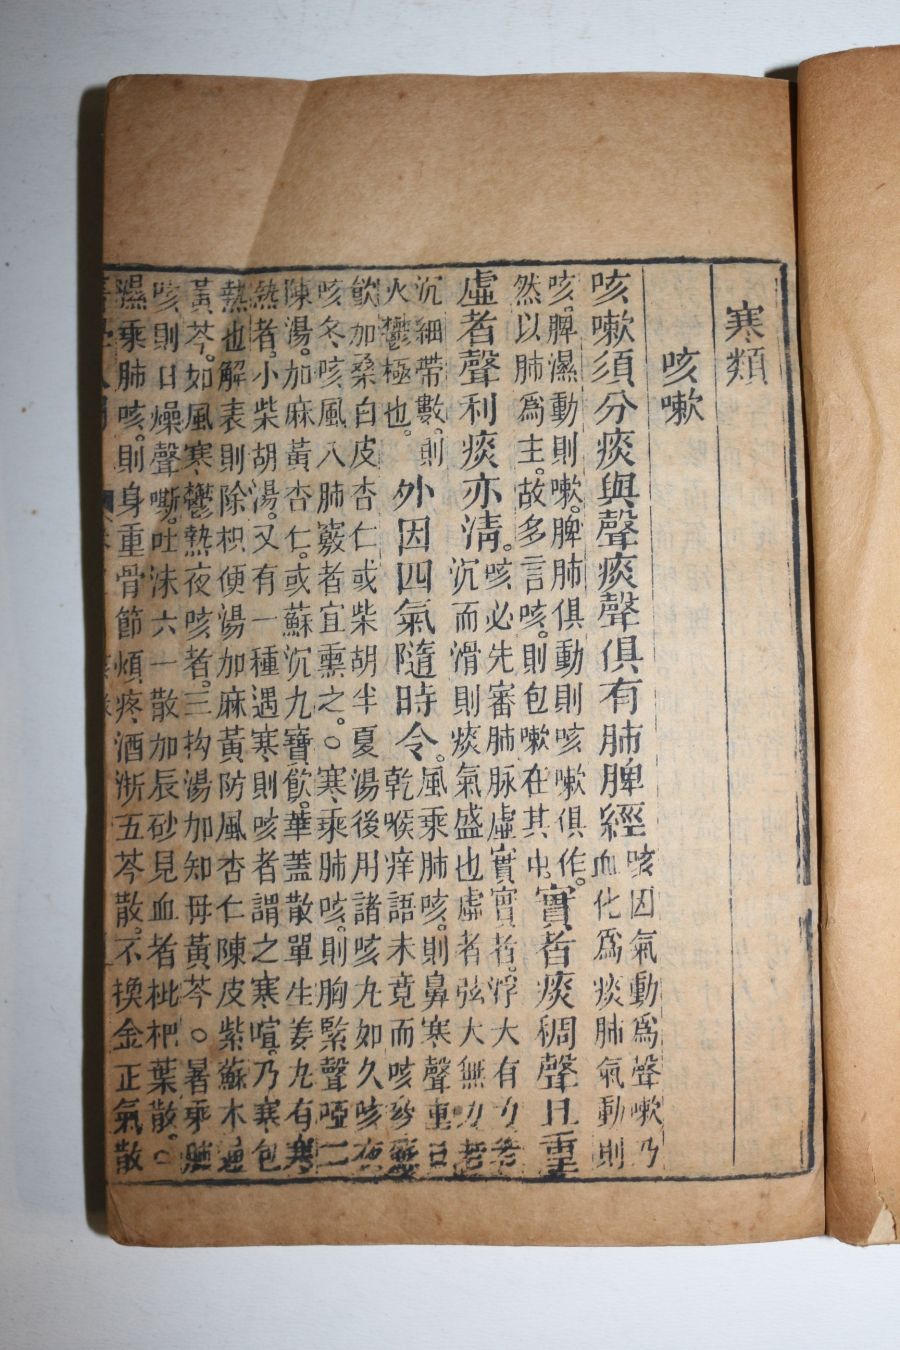 寒類
咳嗽
咳嗽須分痰與聲痰聲俱有肺脾經
咳因氣動爲聲嗽乃
血化爲痰肺氣動則
咳。脾濕動則嗽。脾肺俱動則咳嗽俱作。
然以肺爲主。故多言咳。則包嗽在其中
實者痰稠聲且重
虛者聲利痰亦清。
咳必先審肺脉虛實實者。浮大有力若
沉而滑則痰氣盛也虛者弦大無力若
沉細帶數。則
火鬱極也。
外因四氣隨時令。
風乘肺咳。則鼻寒聲重口
乾喉痒語未竟而咳參變
飲加桑白皮杏仁或柴胡半夏湯後用諸咳丸如久咳夜
咳冬咳風入肺竅者宜熏之。○寒乘肺咳。則胸緊聲啞二
陳湯。加麻黃杏仁。或蘇沉九寶飲。華蓋散單生姜丸有寒
熱者。小柴胡湯。又有一種遇寒則咳者謂之寒暄。乃寒包
熱也解表則除枳便湯加麻黃防風杏仁陳皮紫蘇木通
黃芩。如風寒鬱熱夜咳者。三拘湯加知母黃芩。○暑乘肺
咳則口燥聲嘶。吐沫六一散加辰砂見血者枇杷葉散。○
濕乘肺咳。則身重骨節煩疼洒淅五芩散。不換金正氣散